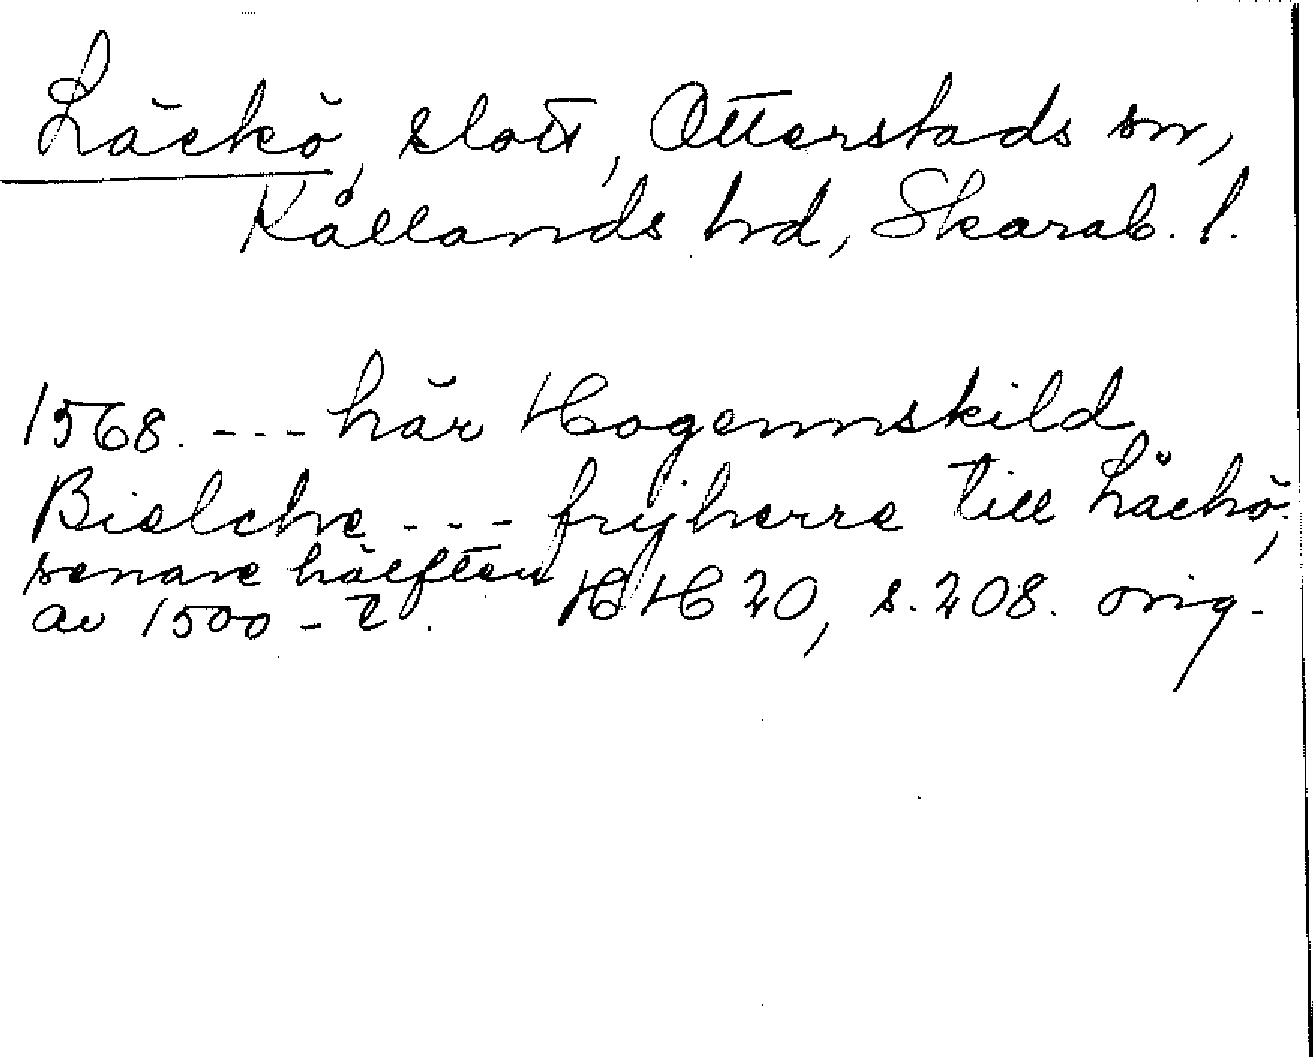 Läckö, slott, Otterstads sn,
Kållands hd, Skarab. l.
1568. --- här Hogennskild
Bielche --- frijherre till Läckö,
senare hälften
av 1500-t. HH 20, s. 208. orig.